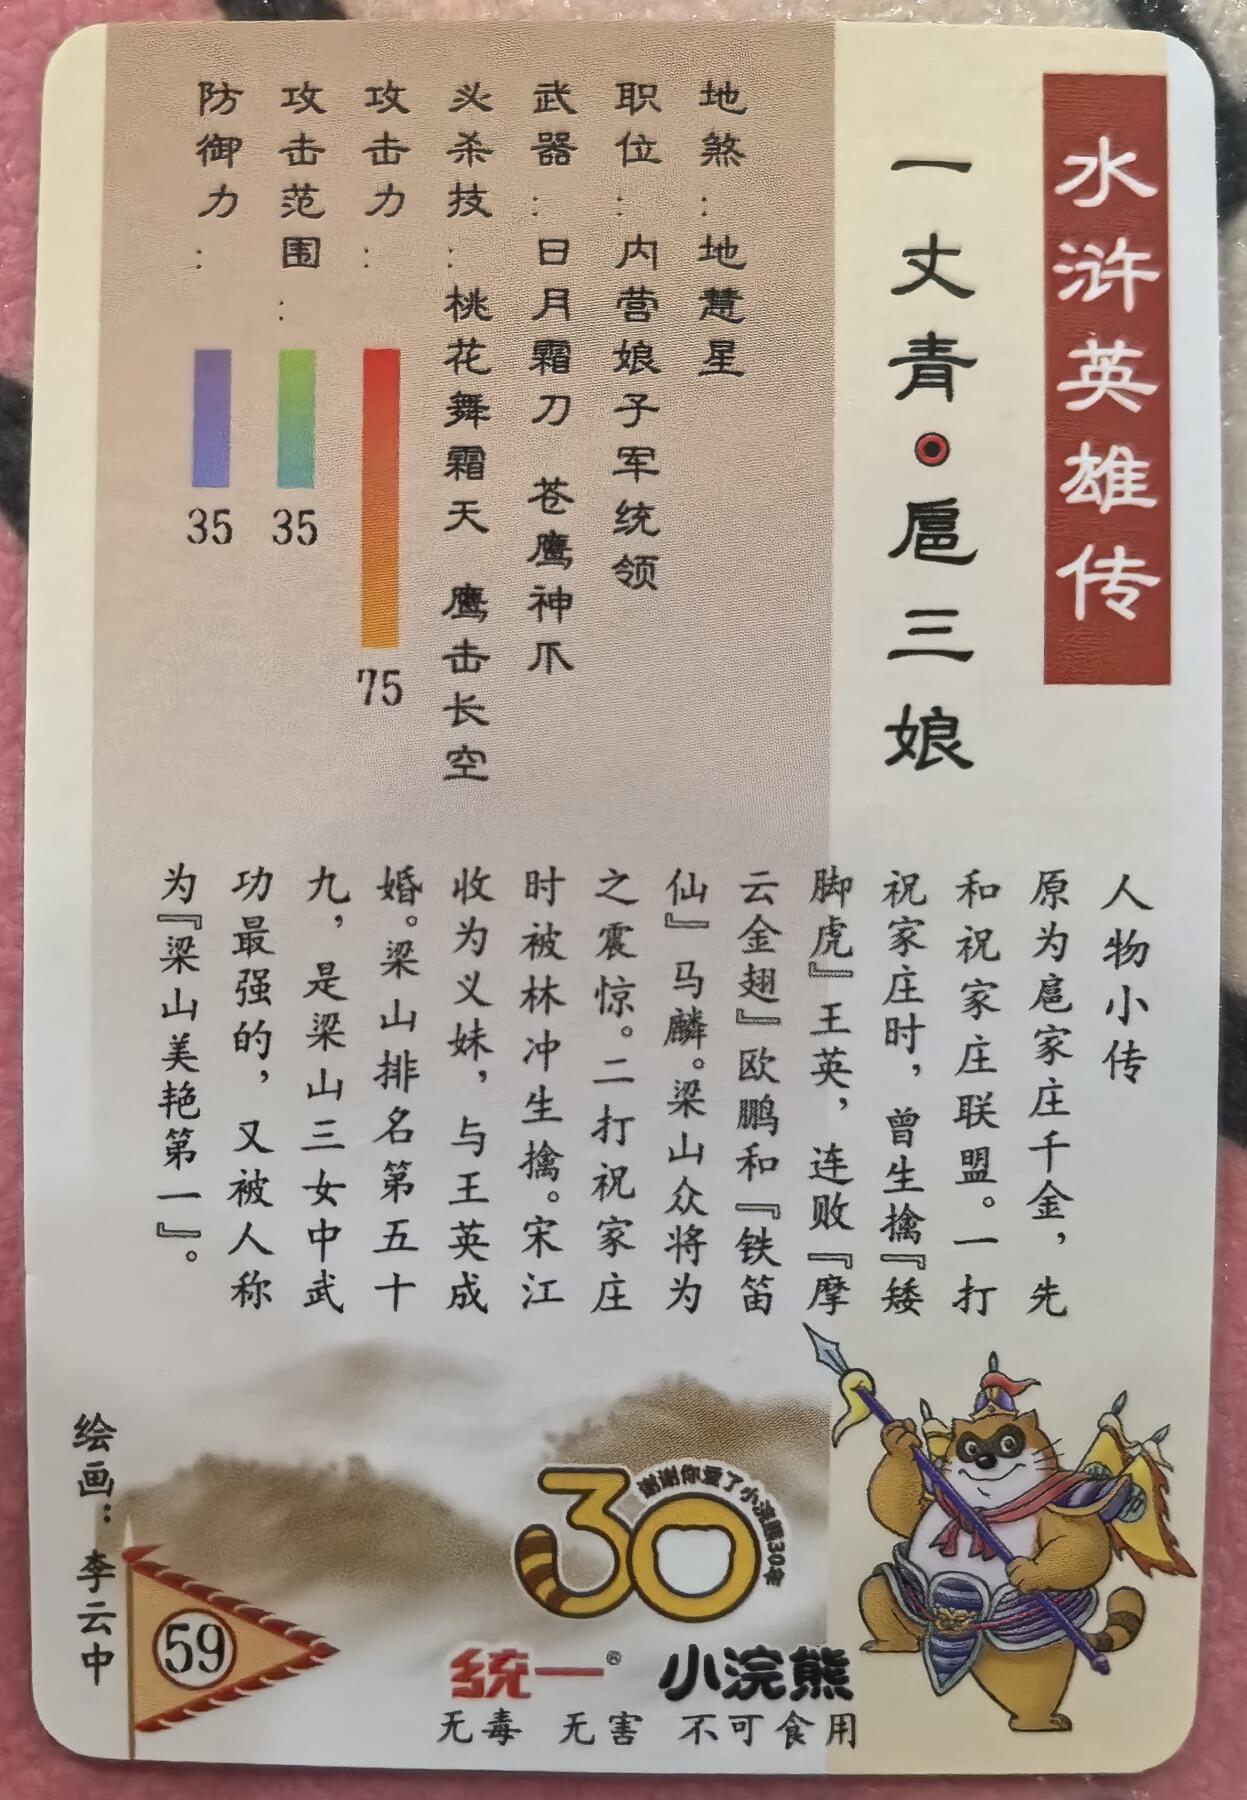 水浒英雄传
一丈青·扈三娘
地煞:地慧星
职位:内营娘子军统领
武器:日月霜刀 苍鹰神爪
头杀技:桃花舞霜天 鹰击长空
攻击力:
75
攻击范围:
35
防御力:
35
人物小传
原为扈家庄千金，先
和祝家庄联盟。一打
祝家庄时，曾生擒『矮
脚虎』王英，连败『摩
云金翅』欧鹏和『铁笛
仙』马麟。梁山众将为
之震惊。二打祝家庄
时被林冲生擒。宋江
收为义妹，与王英成
婚。梁山排名第五十
九，是梁山三女中武
功最强的，又被人称
为『梁山美艳第一』。
绘画:李云中
59
30
谢谢你爱了小浣熊30年
统一® 小浣熊
无毒 无害 不可食用